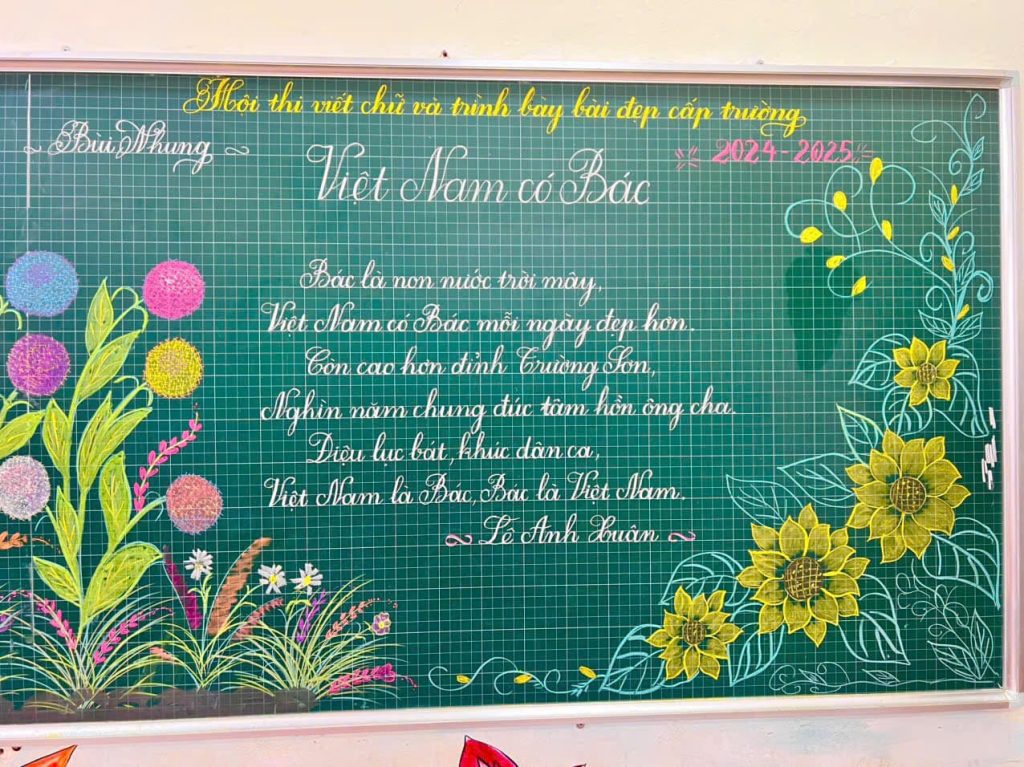 Hội thi viết chữ và trình bày bài đẹp cấp trường
~ Bùi Nhung ~
2024-2025
Việt Nam có Bác
Bác là non nước trời mây,
Việt Nam có Bác mỗi ngày đẹp hơn.
Còn cao hơn đỉnh Trường Sơn,
Nghìn năm chung đúc tâm hồn ông cha.
Điệu lục bát, khúc dân ca,
Việt Nam là Bác, Bác là Việt Nam.
~ Lê Anh Xuân ~